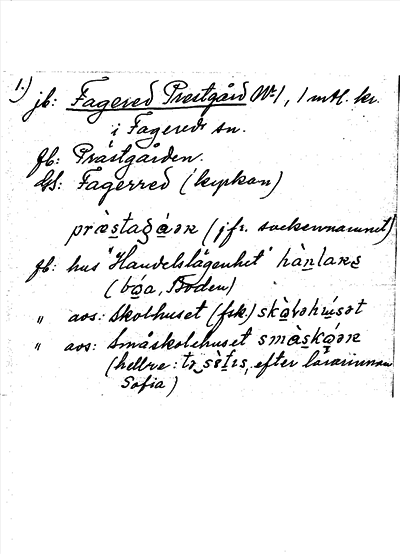 1.) jb: Fagered Prestgård No 1, 1 mtl. kr.
i Fagereds sn.
gb: Prästgården.
GS: Fagerred (kyrkan)
præ̀staga̜ɑ́ɑn (jfr. sockennamnet)
gb: hus "Handelslägenhet" hànlars
(bóa, Boden)
" aos: Skolhuset (frk.) skòləhúsət
" aos: Småskolehuset
(hellre: efter lärarinnan
Sofia)